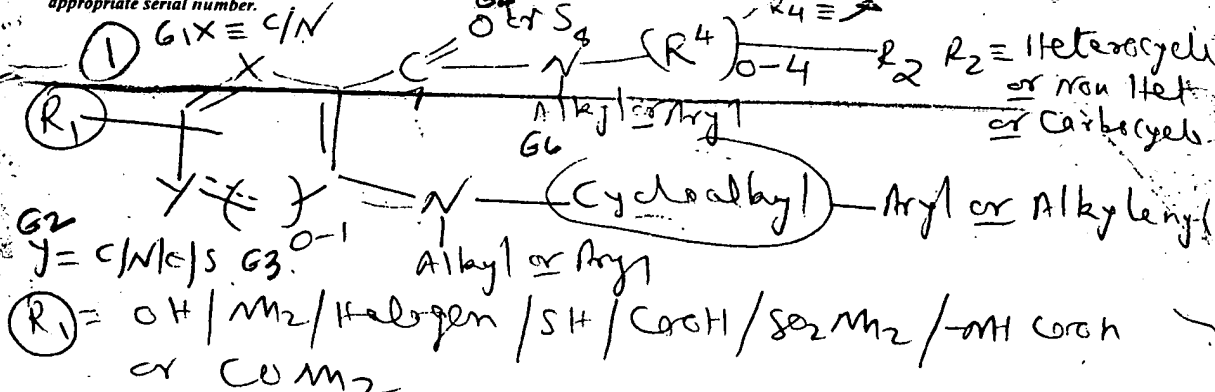 appropriate serial number.
① G1X ≡ C/N
O or S R4 ≡
X C N (R⁴)0-4 R2 R2 ≡ Heterocycle
or Non Het
Alkyl or Aryl or Carbocycle
R1 G6
Y ( ) 0-1 N Cycloalkyl Aryl or Alkylenyl
G2
Y = C/N/O/S G3 Alkyl or Aryl
R1 = OH / NH2 / Halogen / SH / COOH / SO2NH2 /
or CONH2